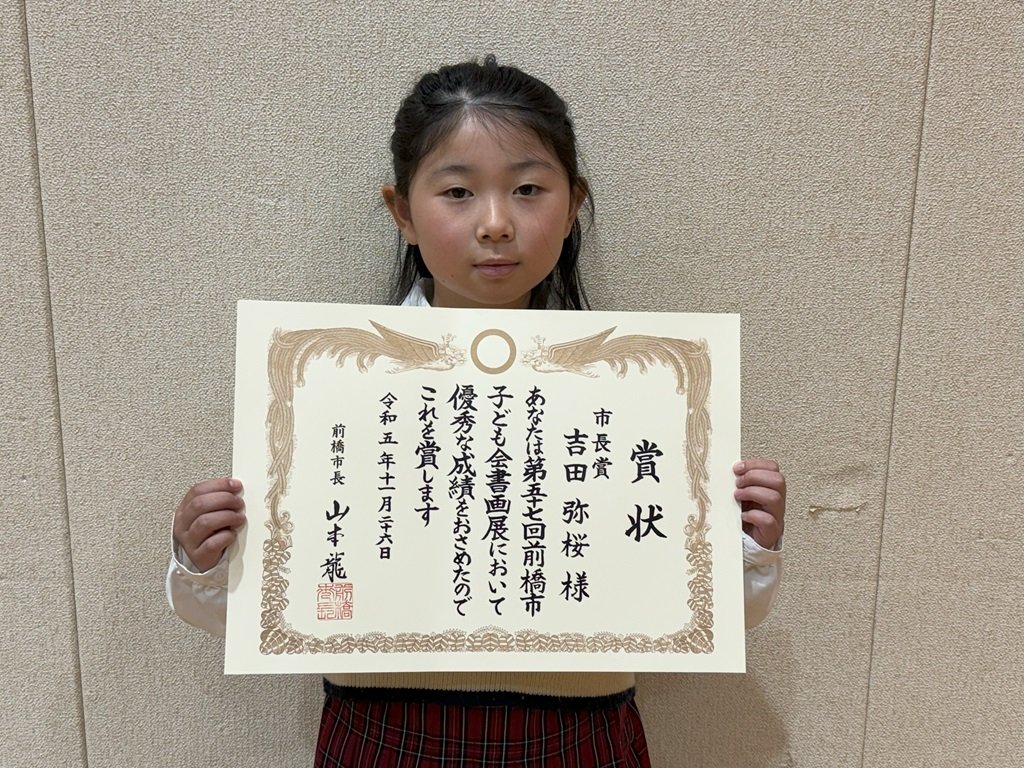 賞状
市長賞
吉田弥桜様
あなたは第五十七回前橋市
子ども会書画展において
優秀な成績をおさめたので
これを賞します
令和五年十一月二十六日
前橋市長 山本龍